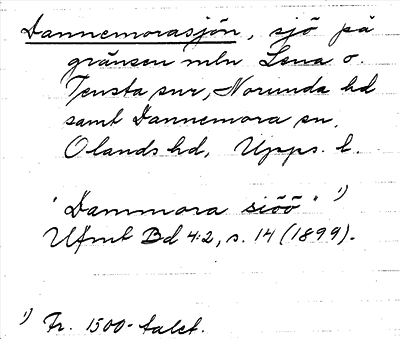 Dannemorasjön, sjö på
gränsen mln Lena o.
Tensta snr, Norunda hd
samt Dannemora sn,
Olands hd, Upps. l.
"Dammora siöö" 1)
Ufmt Bd 4:2, s. 14 (1899).
1) Fr. 1500-talet.